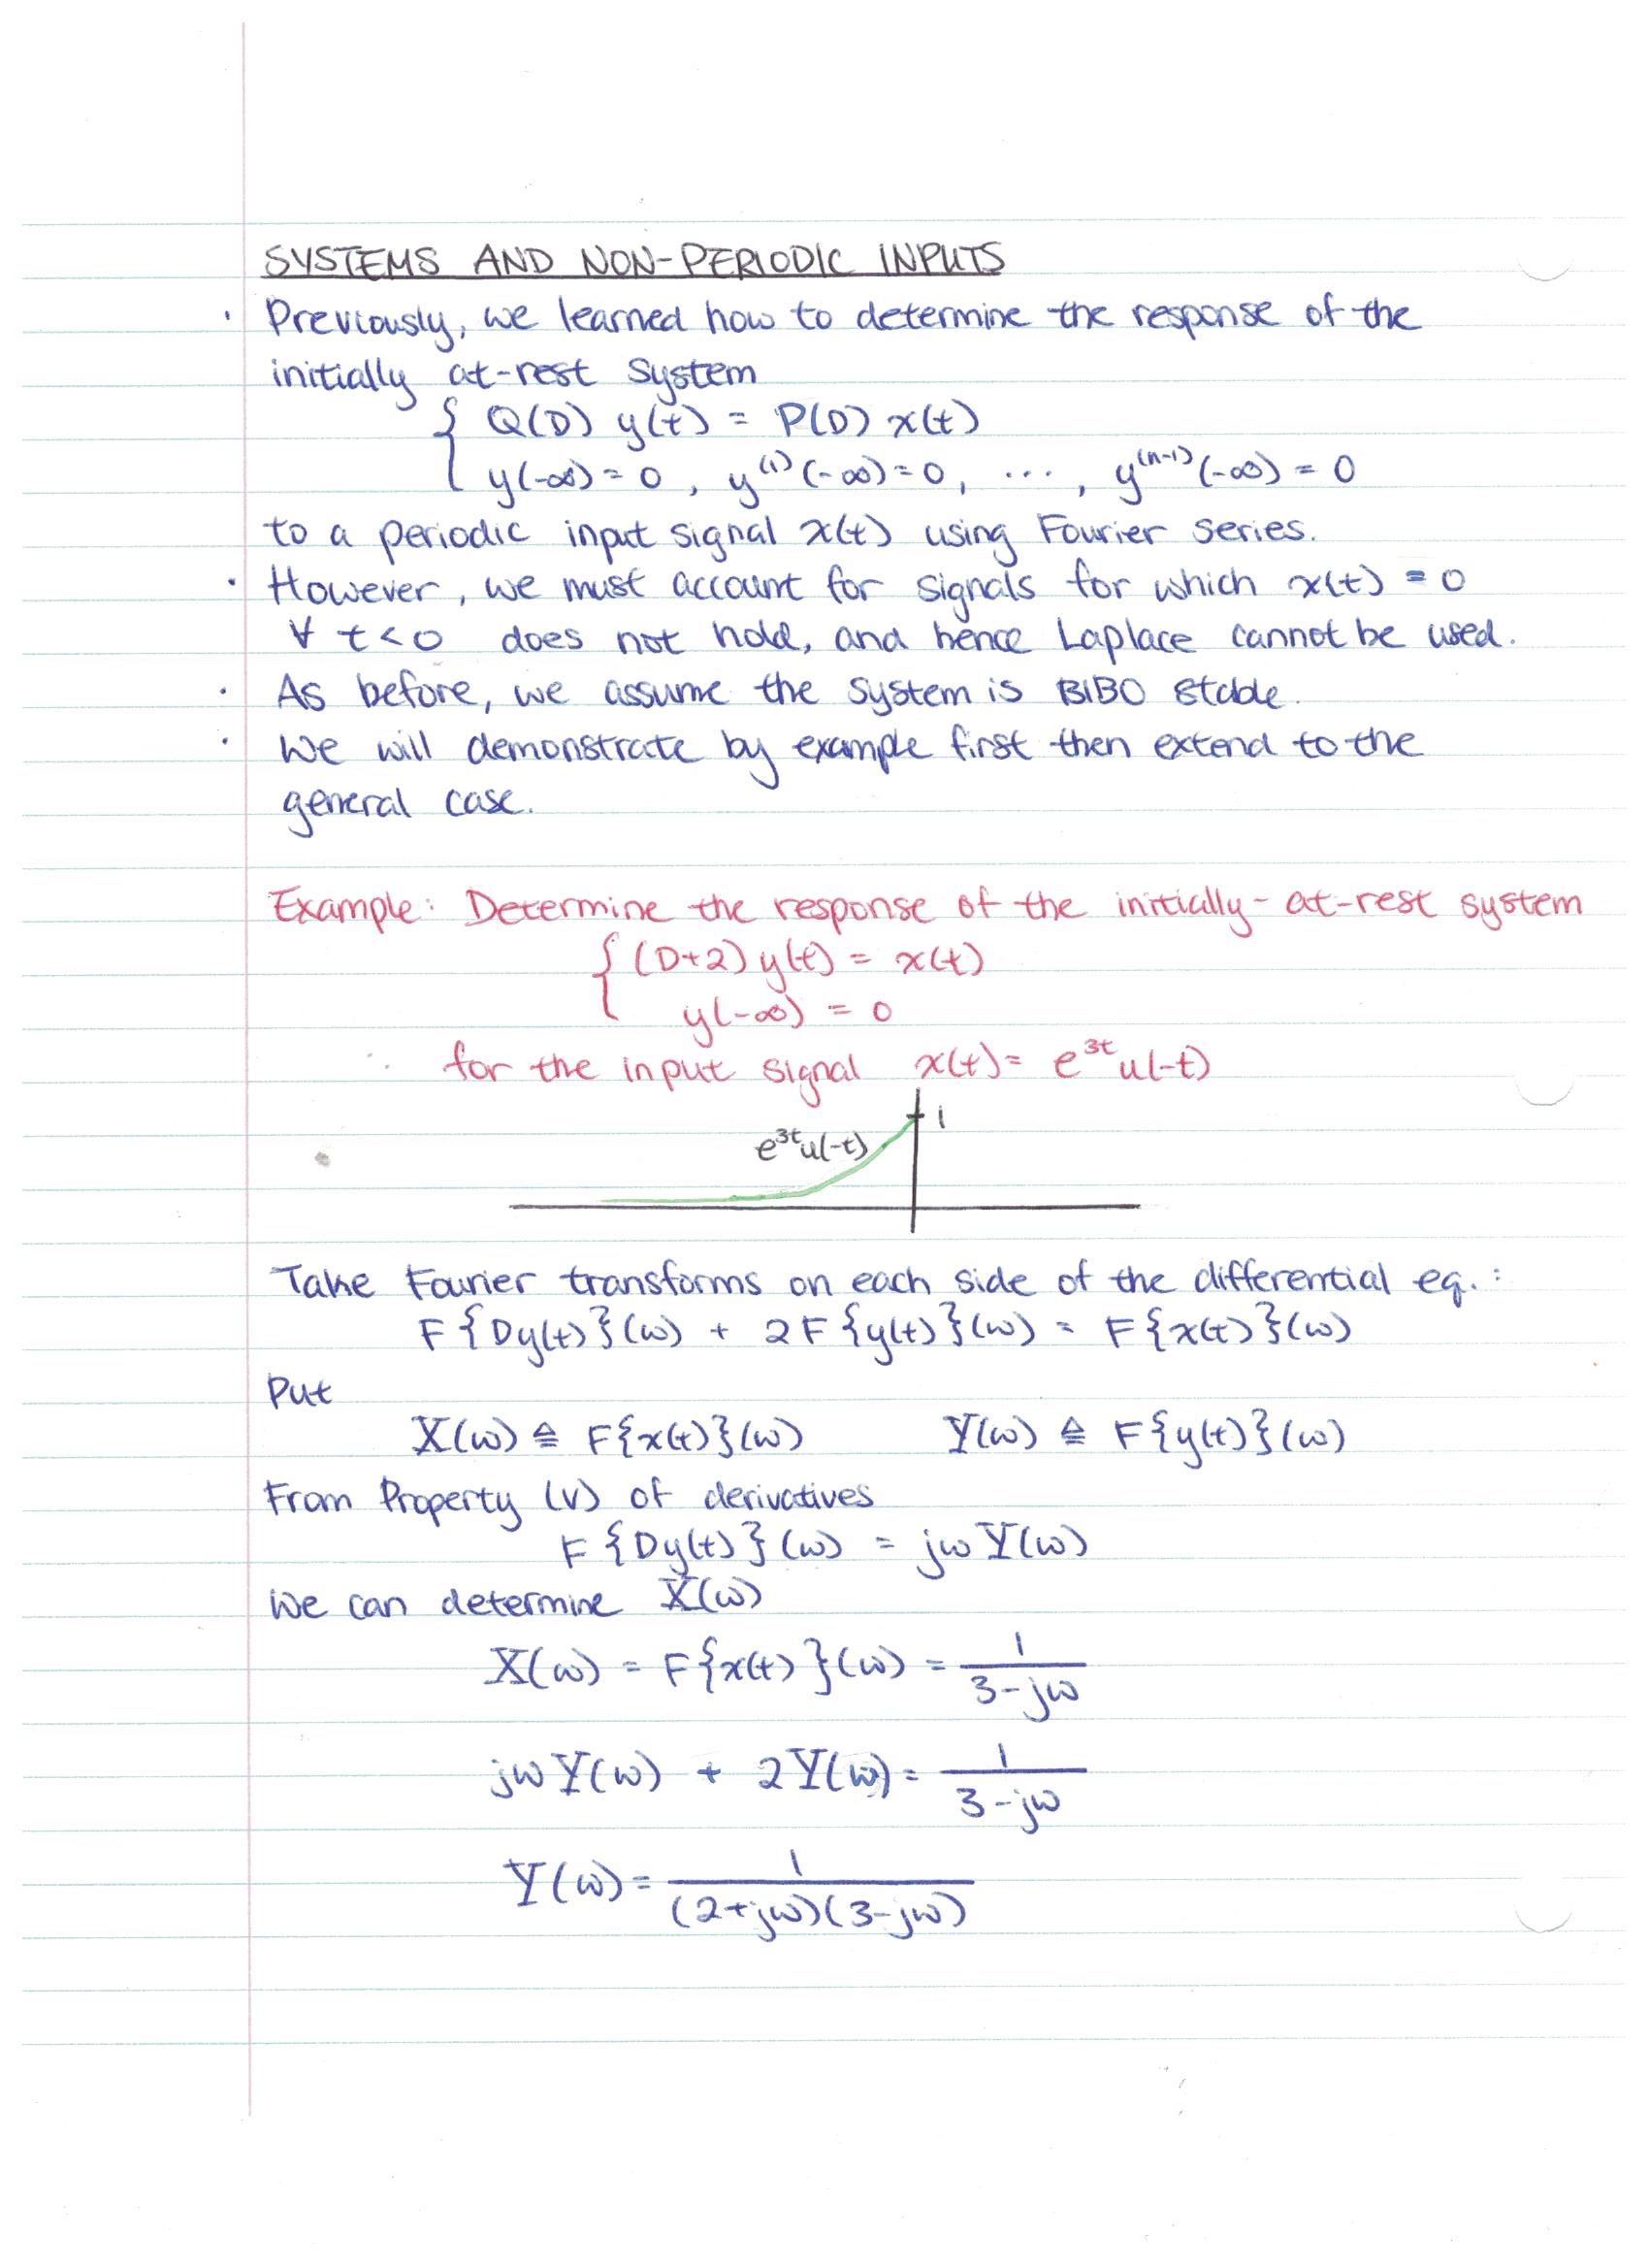 SYSTEMS AND NON-PERIODIC INPUTS
· Previously, we learned how to determine the response of the
initially at-rest system
{ Q(D) y(t) = P(D) x(t)
y(-∞) = 0 , y⁽¹⁾(-∞) = 0, ... , y⁽ⁿ⁻¹⁾(-∞) = 0
to a periodic input signal x(t) using Fourier series.
· However, we must account for signals for which x(t) = 0
∀ t < 0 does not hold, and hence Laplace cannot be used.
· As before, we assume the system is BIBO stable.
· We will demonstrate by example first then extend to the
general case.
Example: Determine the response of the initially-at-rest system
{ (D+2) y(t) = x(t)
y(-∞) = 0
for the input signal x(t) = e³ᵗ u(-t)
1
e³ᵗu(-t)
Take Fourier transforms on each side of the differential eq. :
F{Dy(t)}(ω) + 2F{y(t)}(ω) = F{x(t)}(ω)
Put
X(ω) ≙ F{x(t)}(ω) Y(ω) ≙ F{y(t)}(ω)
From Property (v) of derivatives
F{Dy(t)}(ω) = jωY(ω)
We can determine X(ω)
X(ω) = F{x(t)}(ω) = 1/(3-jω)
jωY(ω) + 2Y(ω) = 1/(3-jω)
Y(ω) = 1/((2+jω)(3-jω))